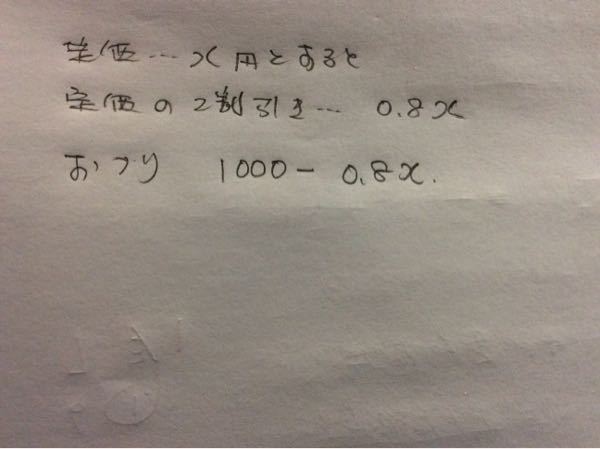 定価…x円とすると
定価の2割引き… 0.8x
おつり 1000－0.8x.